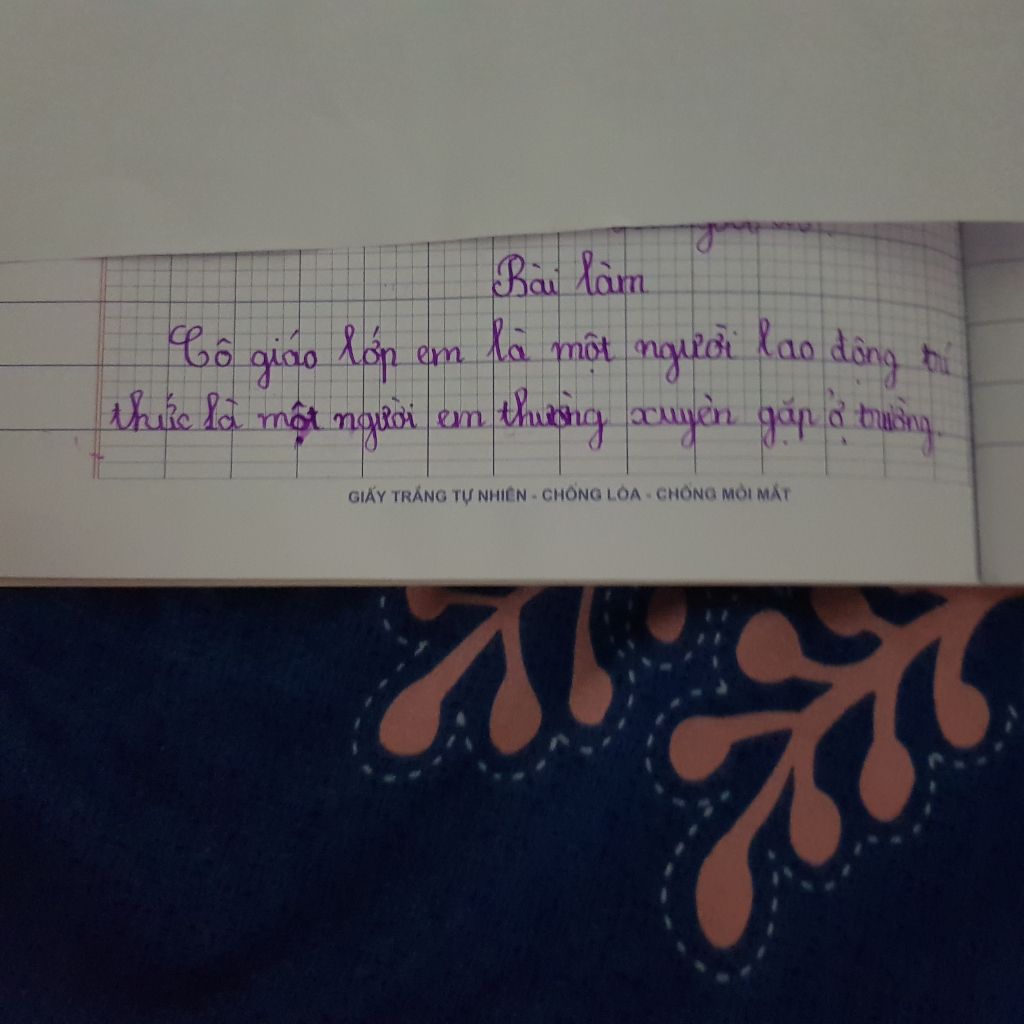 Bài làm
Cô giáo lớp em là một người lao động trí
thức là một người em thường xuyên gặp ở trường.
GIẤY TRẮNG TỰ NHIÊN - CHỐNG LÓA - CHỐNG MỎI MẮT